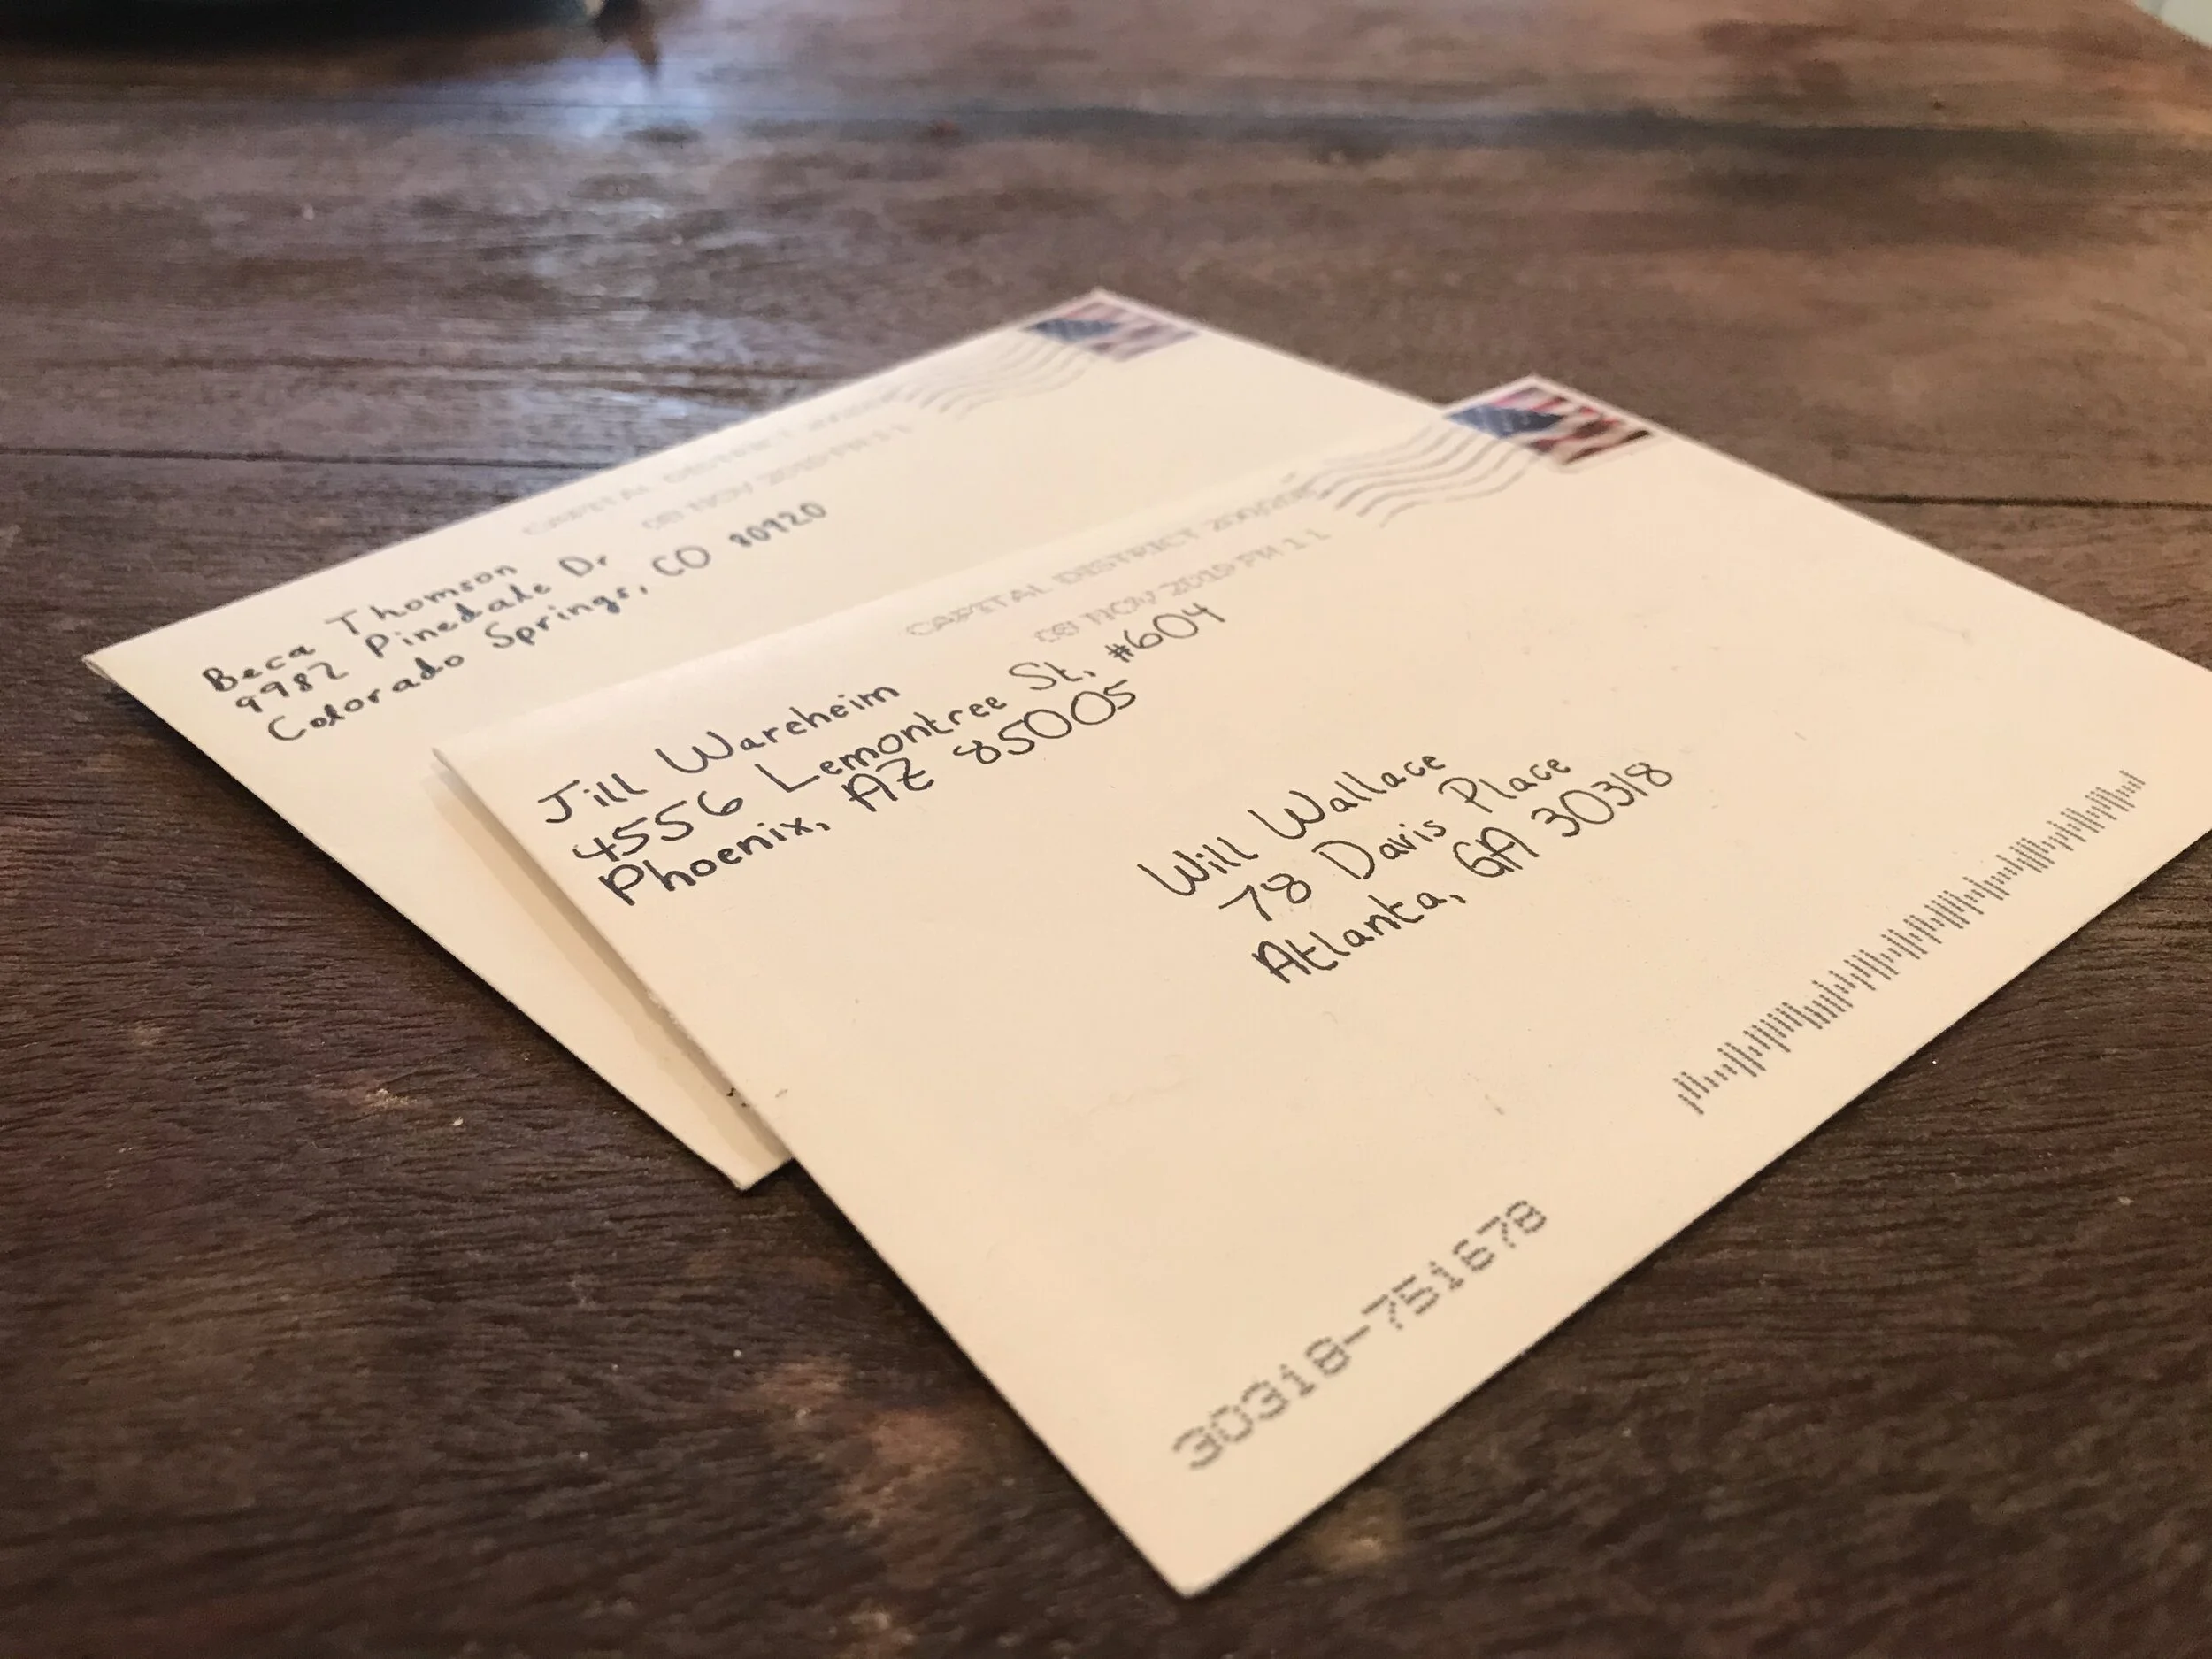 Beca Thomson
9982 Pinedale Dr
Colorado Springs, CO 80920
CAPITAL DISTRICT
08 NOV 2019 PM 1 L
Jill Wareheim
4556 Lemontree St, #604
Phoenix, AZ 85005
CAPITAL DISTRICT
08 NOV 2019 PM 1 L
Will Wallace
78 Davis Place
Atlanta, GA 30318
30318-751678